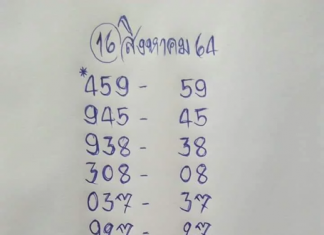 16 สิงหาคม 64
*459 - 59
945 - 45
938 - 38
308 - 08
037 - 37